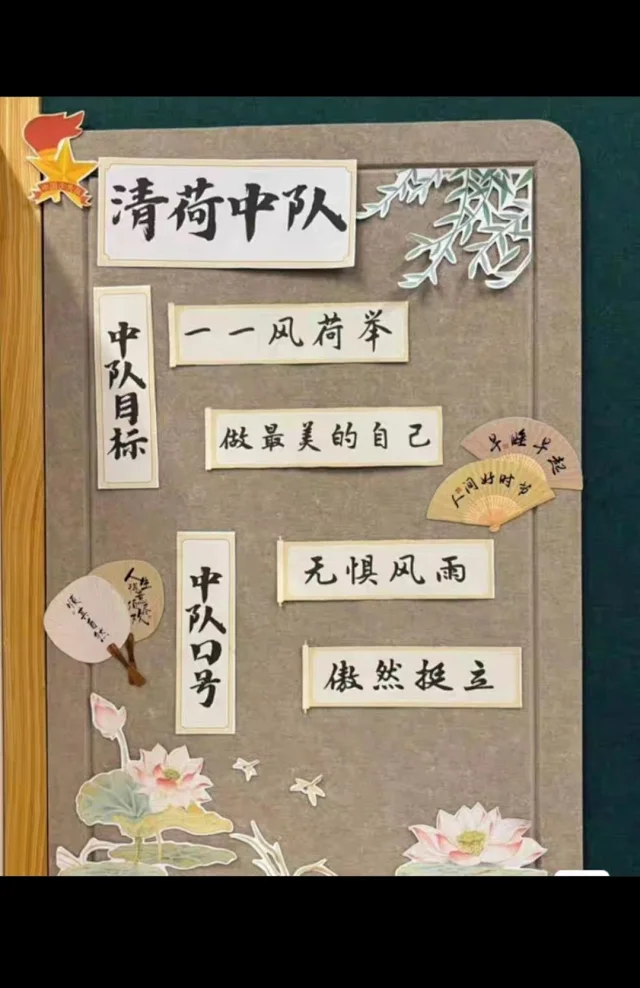 清荷中队
中队目标
一一风荷举
做最美的自己
早睡早起
人间好时节
中队口号
无惧风雨
傲然挺立
顺其自然